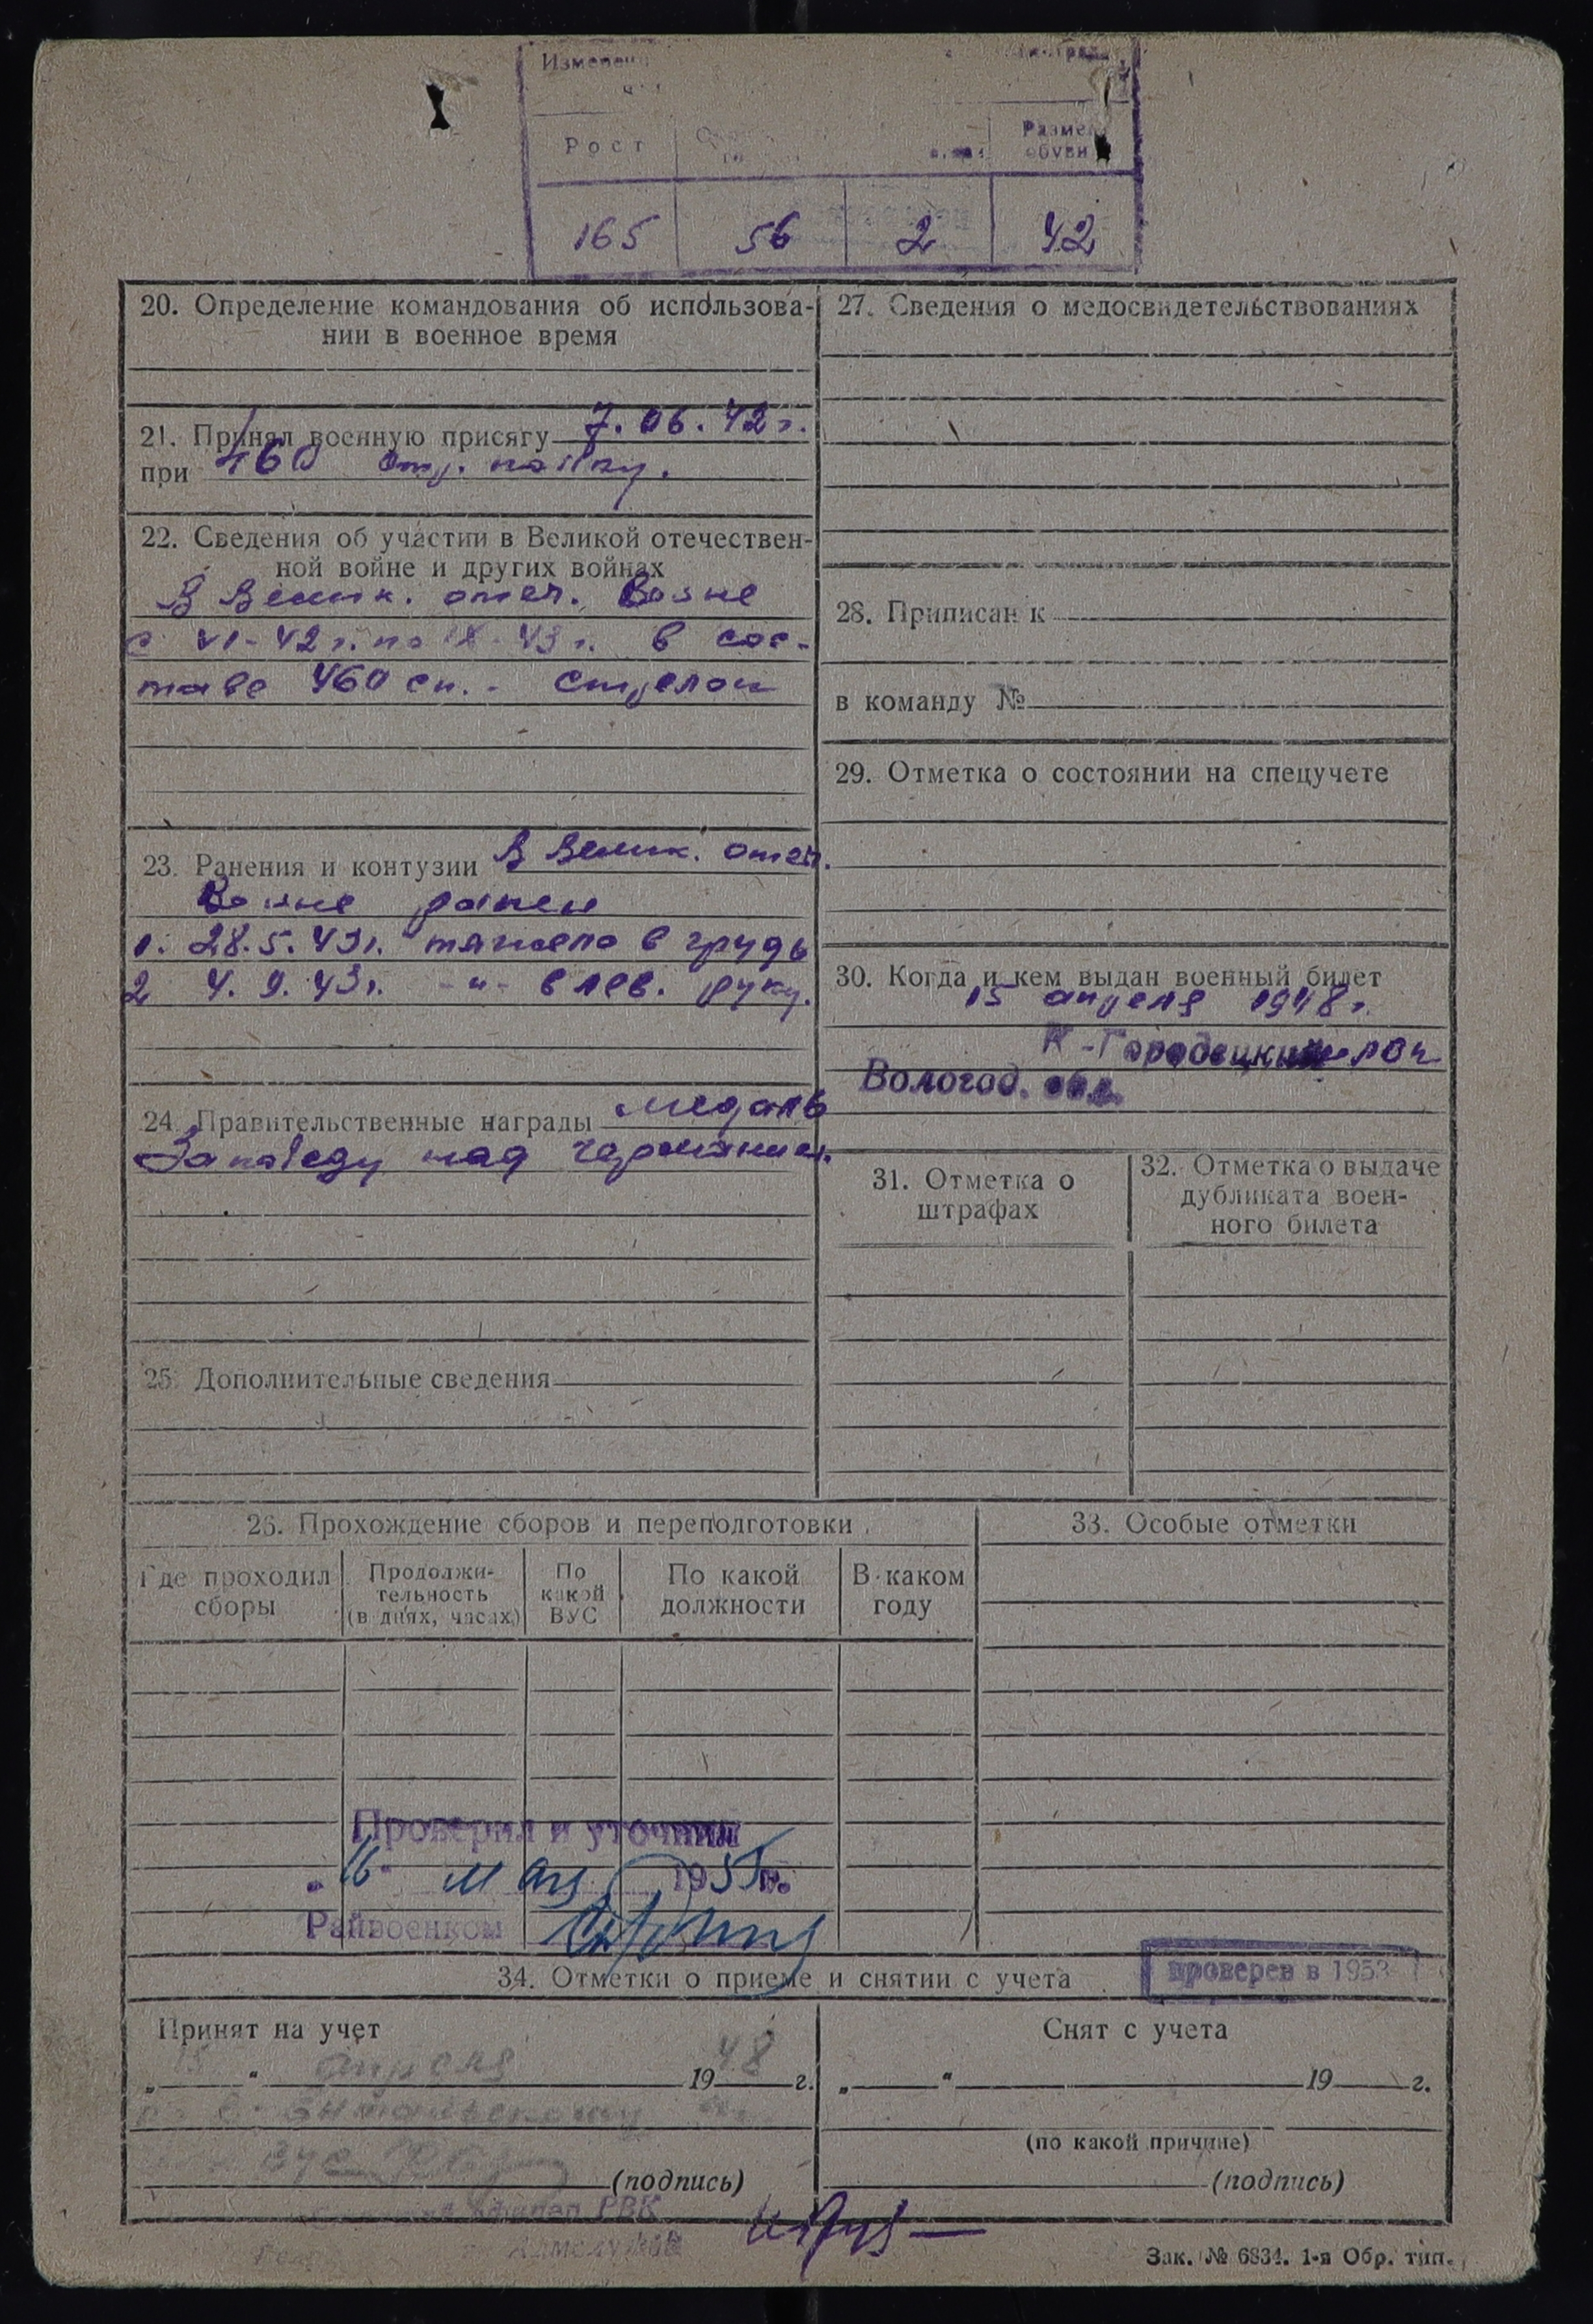 Рост
Размер
обуви
165 56 2 42
20. Определение командования об использова-
нии в военное время
21. Принял военную присягу 7.06.42 г.
при 460 стр. полку.
22. Сведения об участии в Великой отечествен-
ной войне и других войнах
В Велик. отеч. Войне
с VI-42 г. по IX-43 г. в сос-
таве 460 сп. - стрелок
23. Ранения и контузии В Велик. отеч.
Войне ранен
1. 28.5.43г. тяжело в грудь
2 4.9.43г. -"- в лев. руку.
24. Правительственные награды медаль
За победу над германией.
25. Дополнительные сведения
26. Прохождение сборов и переподготовки
Где проходил
сборы
Продолжи-
тельность
(в днях, часах)
По
какой
ВУС
По какой
должности
В каком
году
Проверил и уточнил
"16" мая 1955 г.
Райвоенком
27. Сведения о медосвидетельствованиях
28. Приписан к
в команду №
29. Отметка о состоянии на спецучете
30. Когда и кем выдан военный билет
15 апреля 1948 г.
К-Городецким РВК
Вологод. обл.
31. Отметка о
штрафах
32. Отметка о выдаче
дубликата воен-
ного билета
33. Особые отметки
34. Отметки о приеме и снятии с учета
проверен в 1953
Принят на учет
„15“ апреля 1948 г.
(подпись)
РВК
Снят с учета
„ “ 19 г.
(по какой причине)
(подпись)
Зак. № 6834. 1-я Обр. тип.